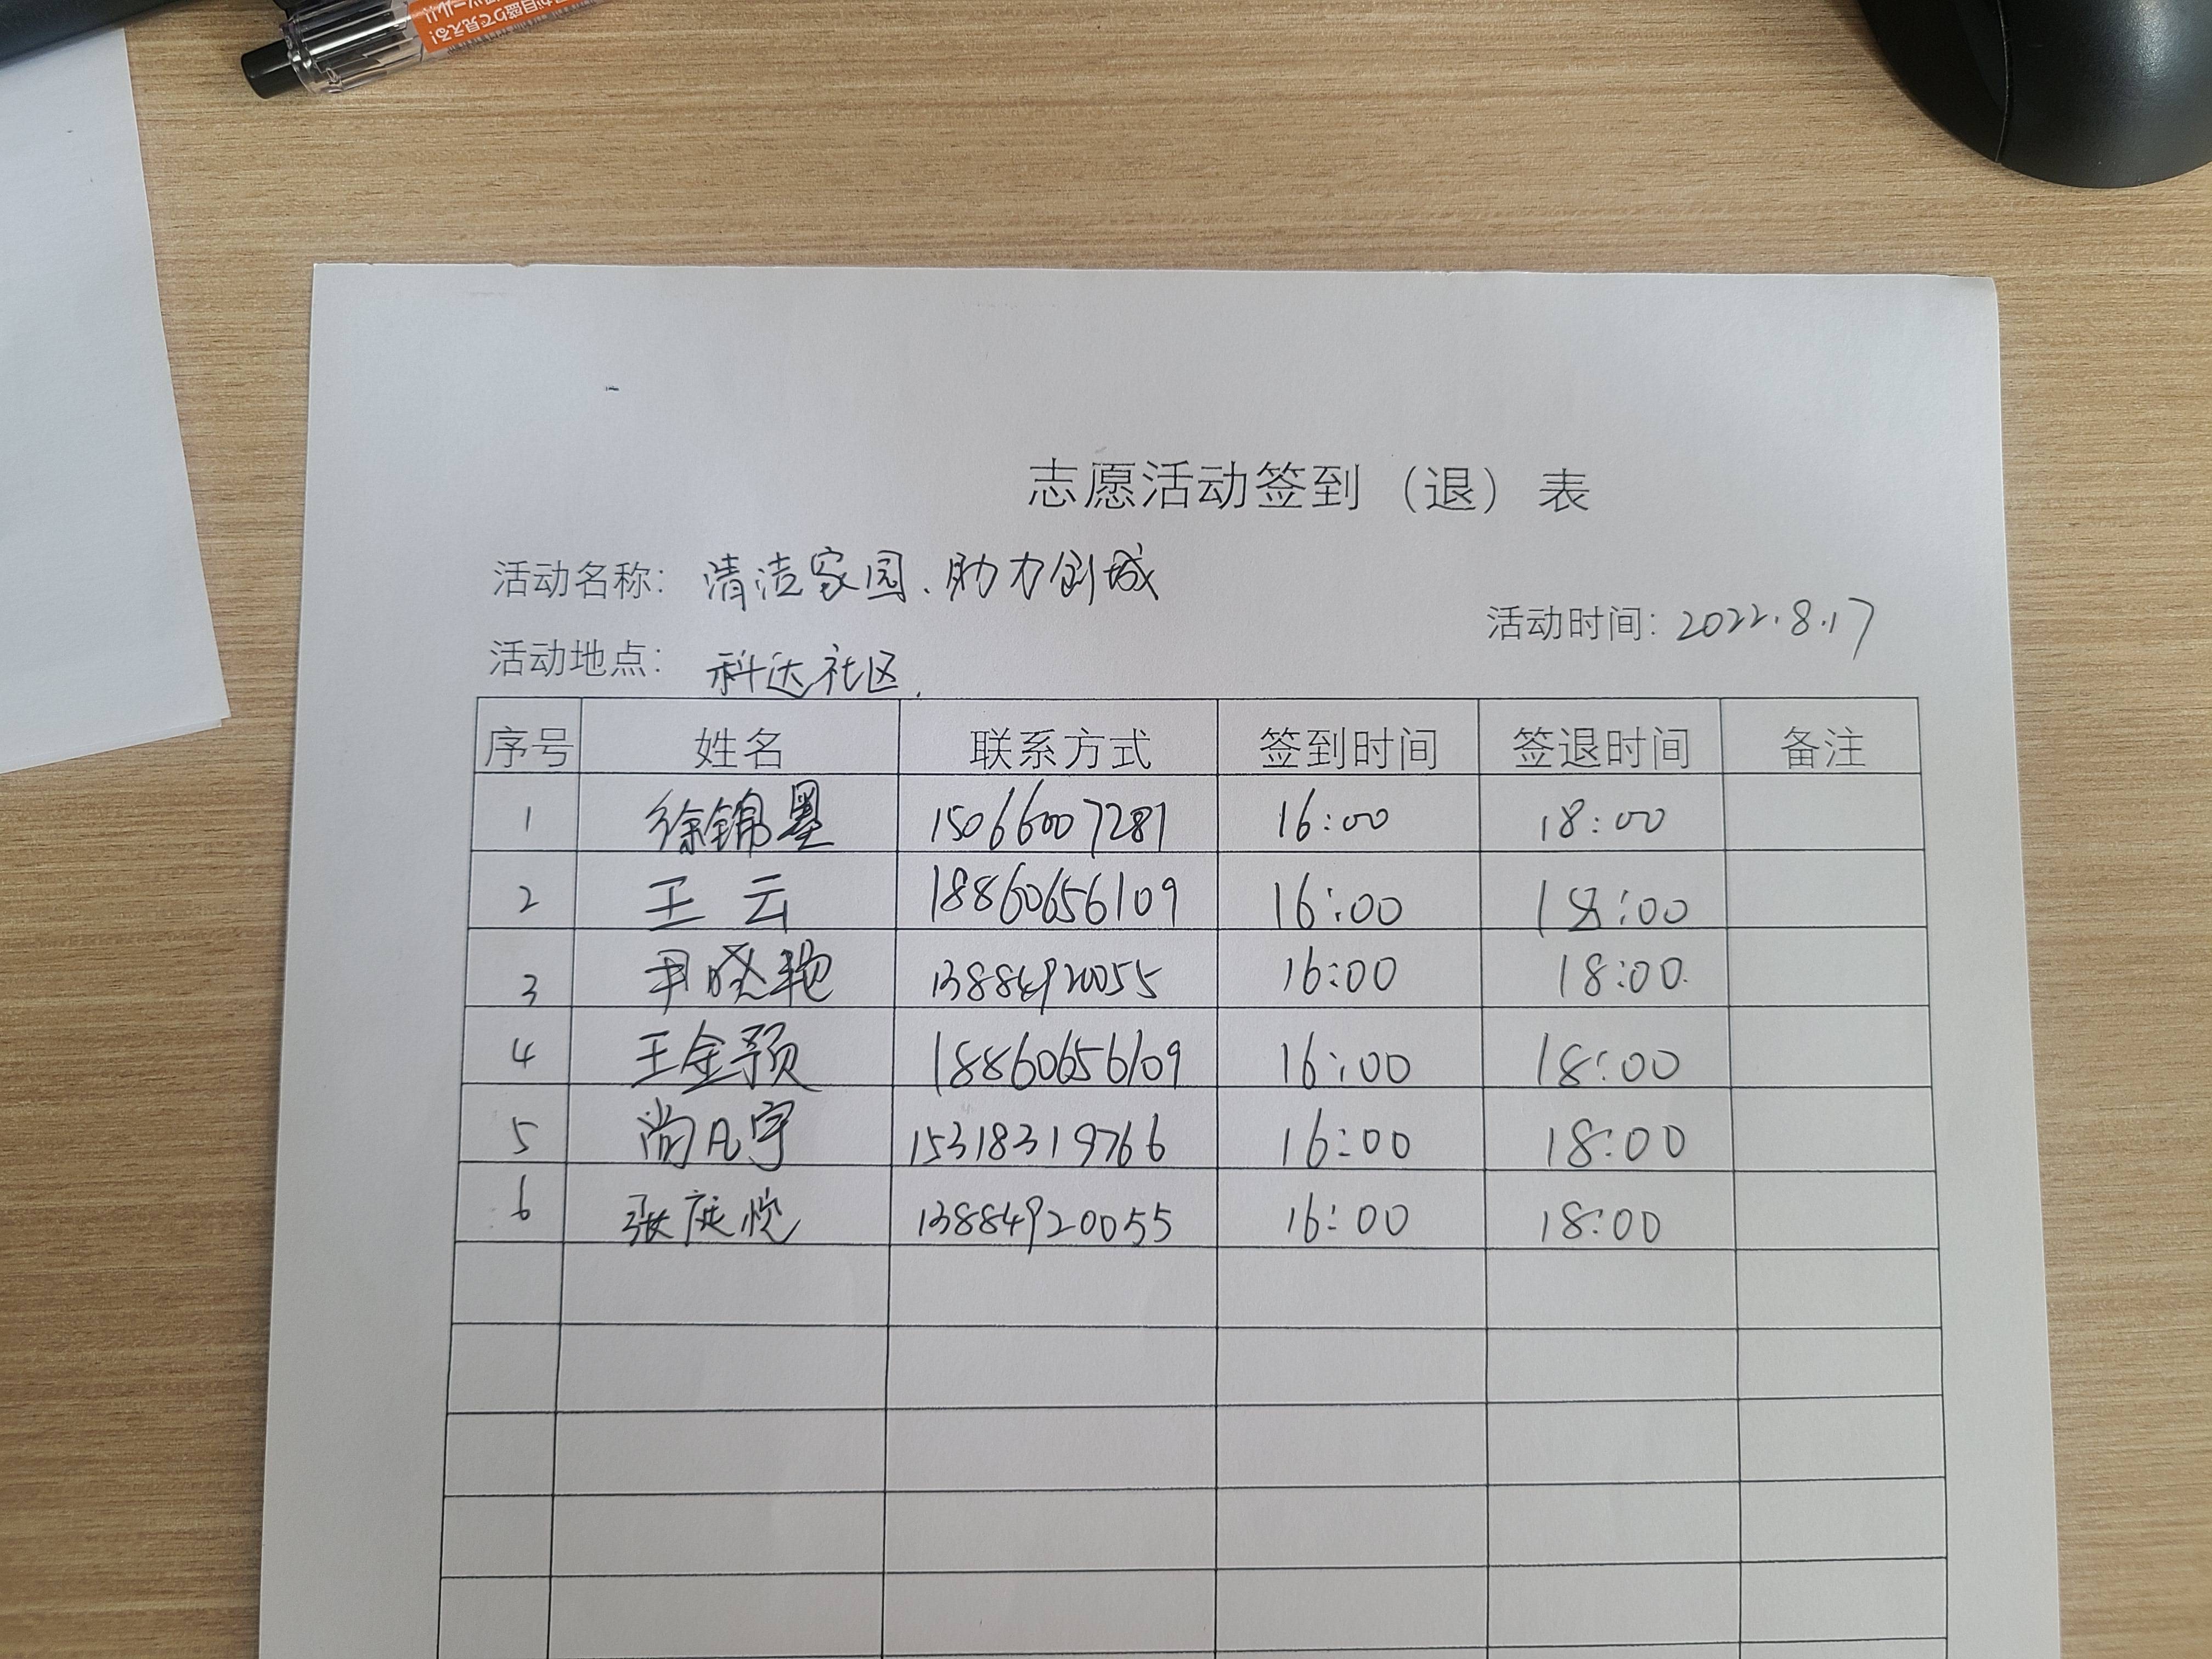 が目盛りで見える!
志愿活动签到（退）表
活动名称： 清洁家园、助力创城
活动时间：2022.8.17
活动地点： 科达社区
序号 姓名 联系方式 签到时间 签退时间 备注
1 徐锦墨 15066007281 16:00 18:00
2 王云 18860656109 16:00 18:00
3 尹晓艳 13884920055 16:00 18:00
4 王金颖 18860656109 16:00 18:00
5 尚凡宇 15318319766 16:00 18:00
6 张庭悦 13884920055 16:00 18:00